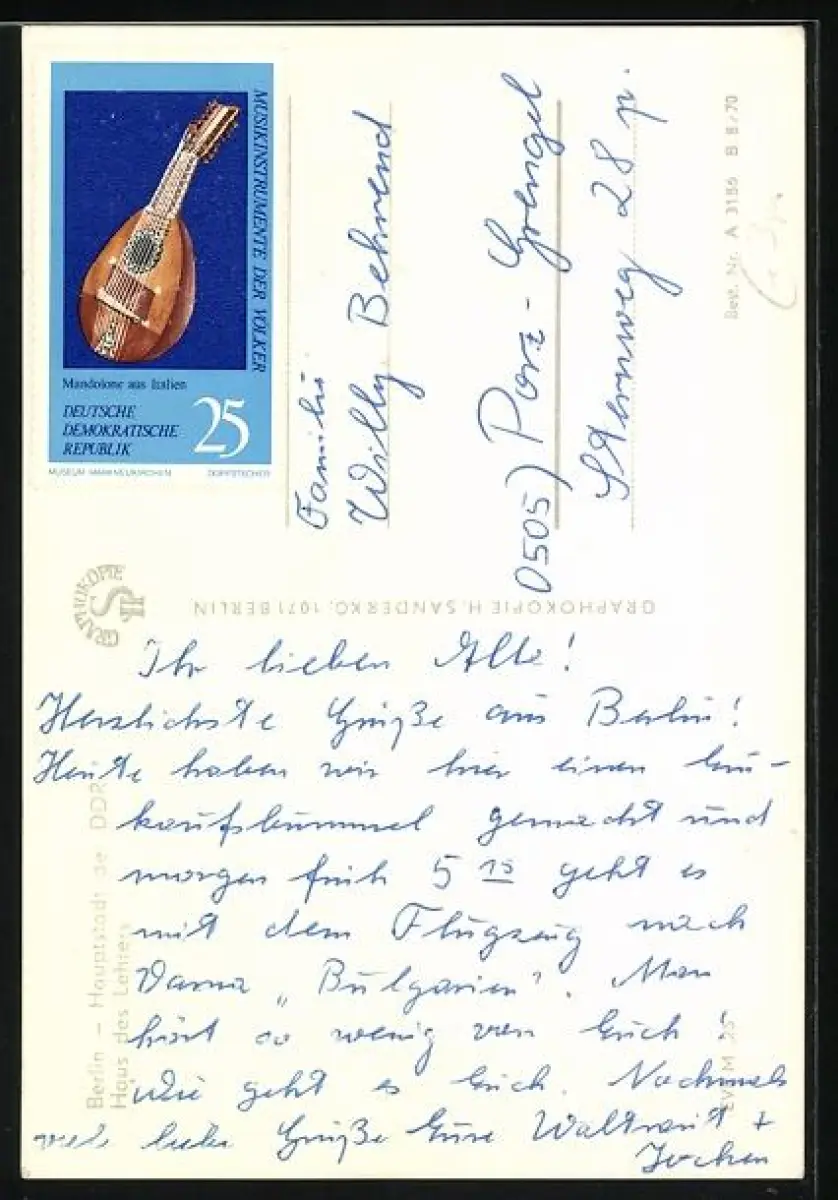 MUSIKINSTRUMENTE DER VÖLKER
Mandolone aus Italien
DEUTSCHE
DEMOKRATISCHE
REPUBLIK
25
MUSEUM MARKNEUKIRCHEN
DORFSTECHER
Familie
Willy Behrend
0505) Porz-Grengel
Sternweg 28 p.
Best. Nr. A 3156 B 8/70
GRAPHOKOPIE
GRAPHOKOPIE H. SANDERKO, 1071 BERLIN
Ihr lieben Alle!
Herzlichste Grüße aus Berlin!
Heute haben wir hier einen Ein-
kaufsbummel gemacht und
morgen früh 5 15 geht es
mit dem Flugzeug nach
Varna „Bulgarien“. Man
hört so wenig von Euch!
Wie geht es Euch. Nochmals
viele liebe Grüße Eure Waltraut +
Jochen
Berlin – Hauptstadt der DDR
Haus des Lehrers
EVP M